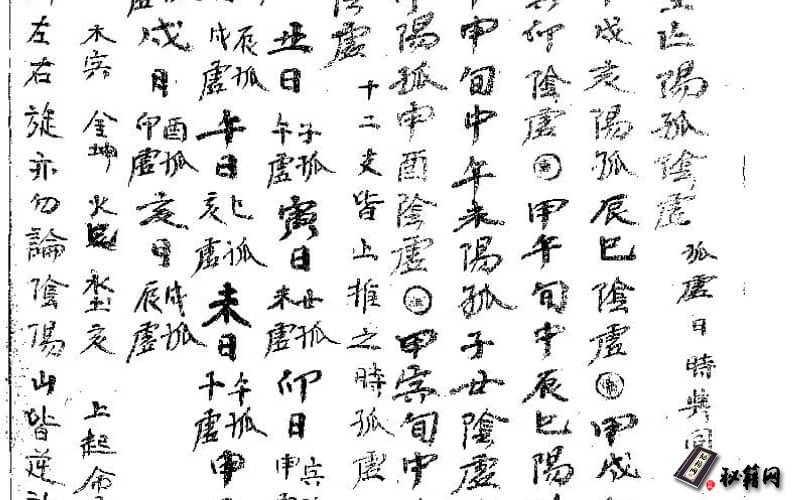 陽孤陰虛 孤虛日時與同
戌亥陽孤辰巳陰虛 甲戌
卯陰虛 甲午旬中辰巳陽
申旬中午未陽孤子丑陰虛
陽孤申酉陰虛 甲寅旬中
陰虛 十二支皆上推之時孤虛
丑日 子孤午虛 寅日 丑孤未虛 卯日 寅孤申
辰孤戌虛 午日 巳孤亥虛 未日 午孤子虛 申
虛 戌日 酉孤卯虛 亥日 戌孤辰虛
木寅 金坤 火巳 水土亥 上起命
左右旋亦勿論陰陽山皆逆
秘籍网